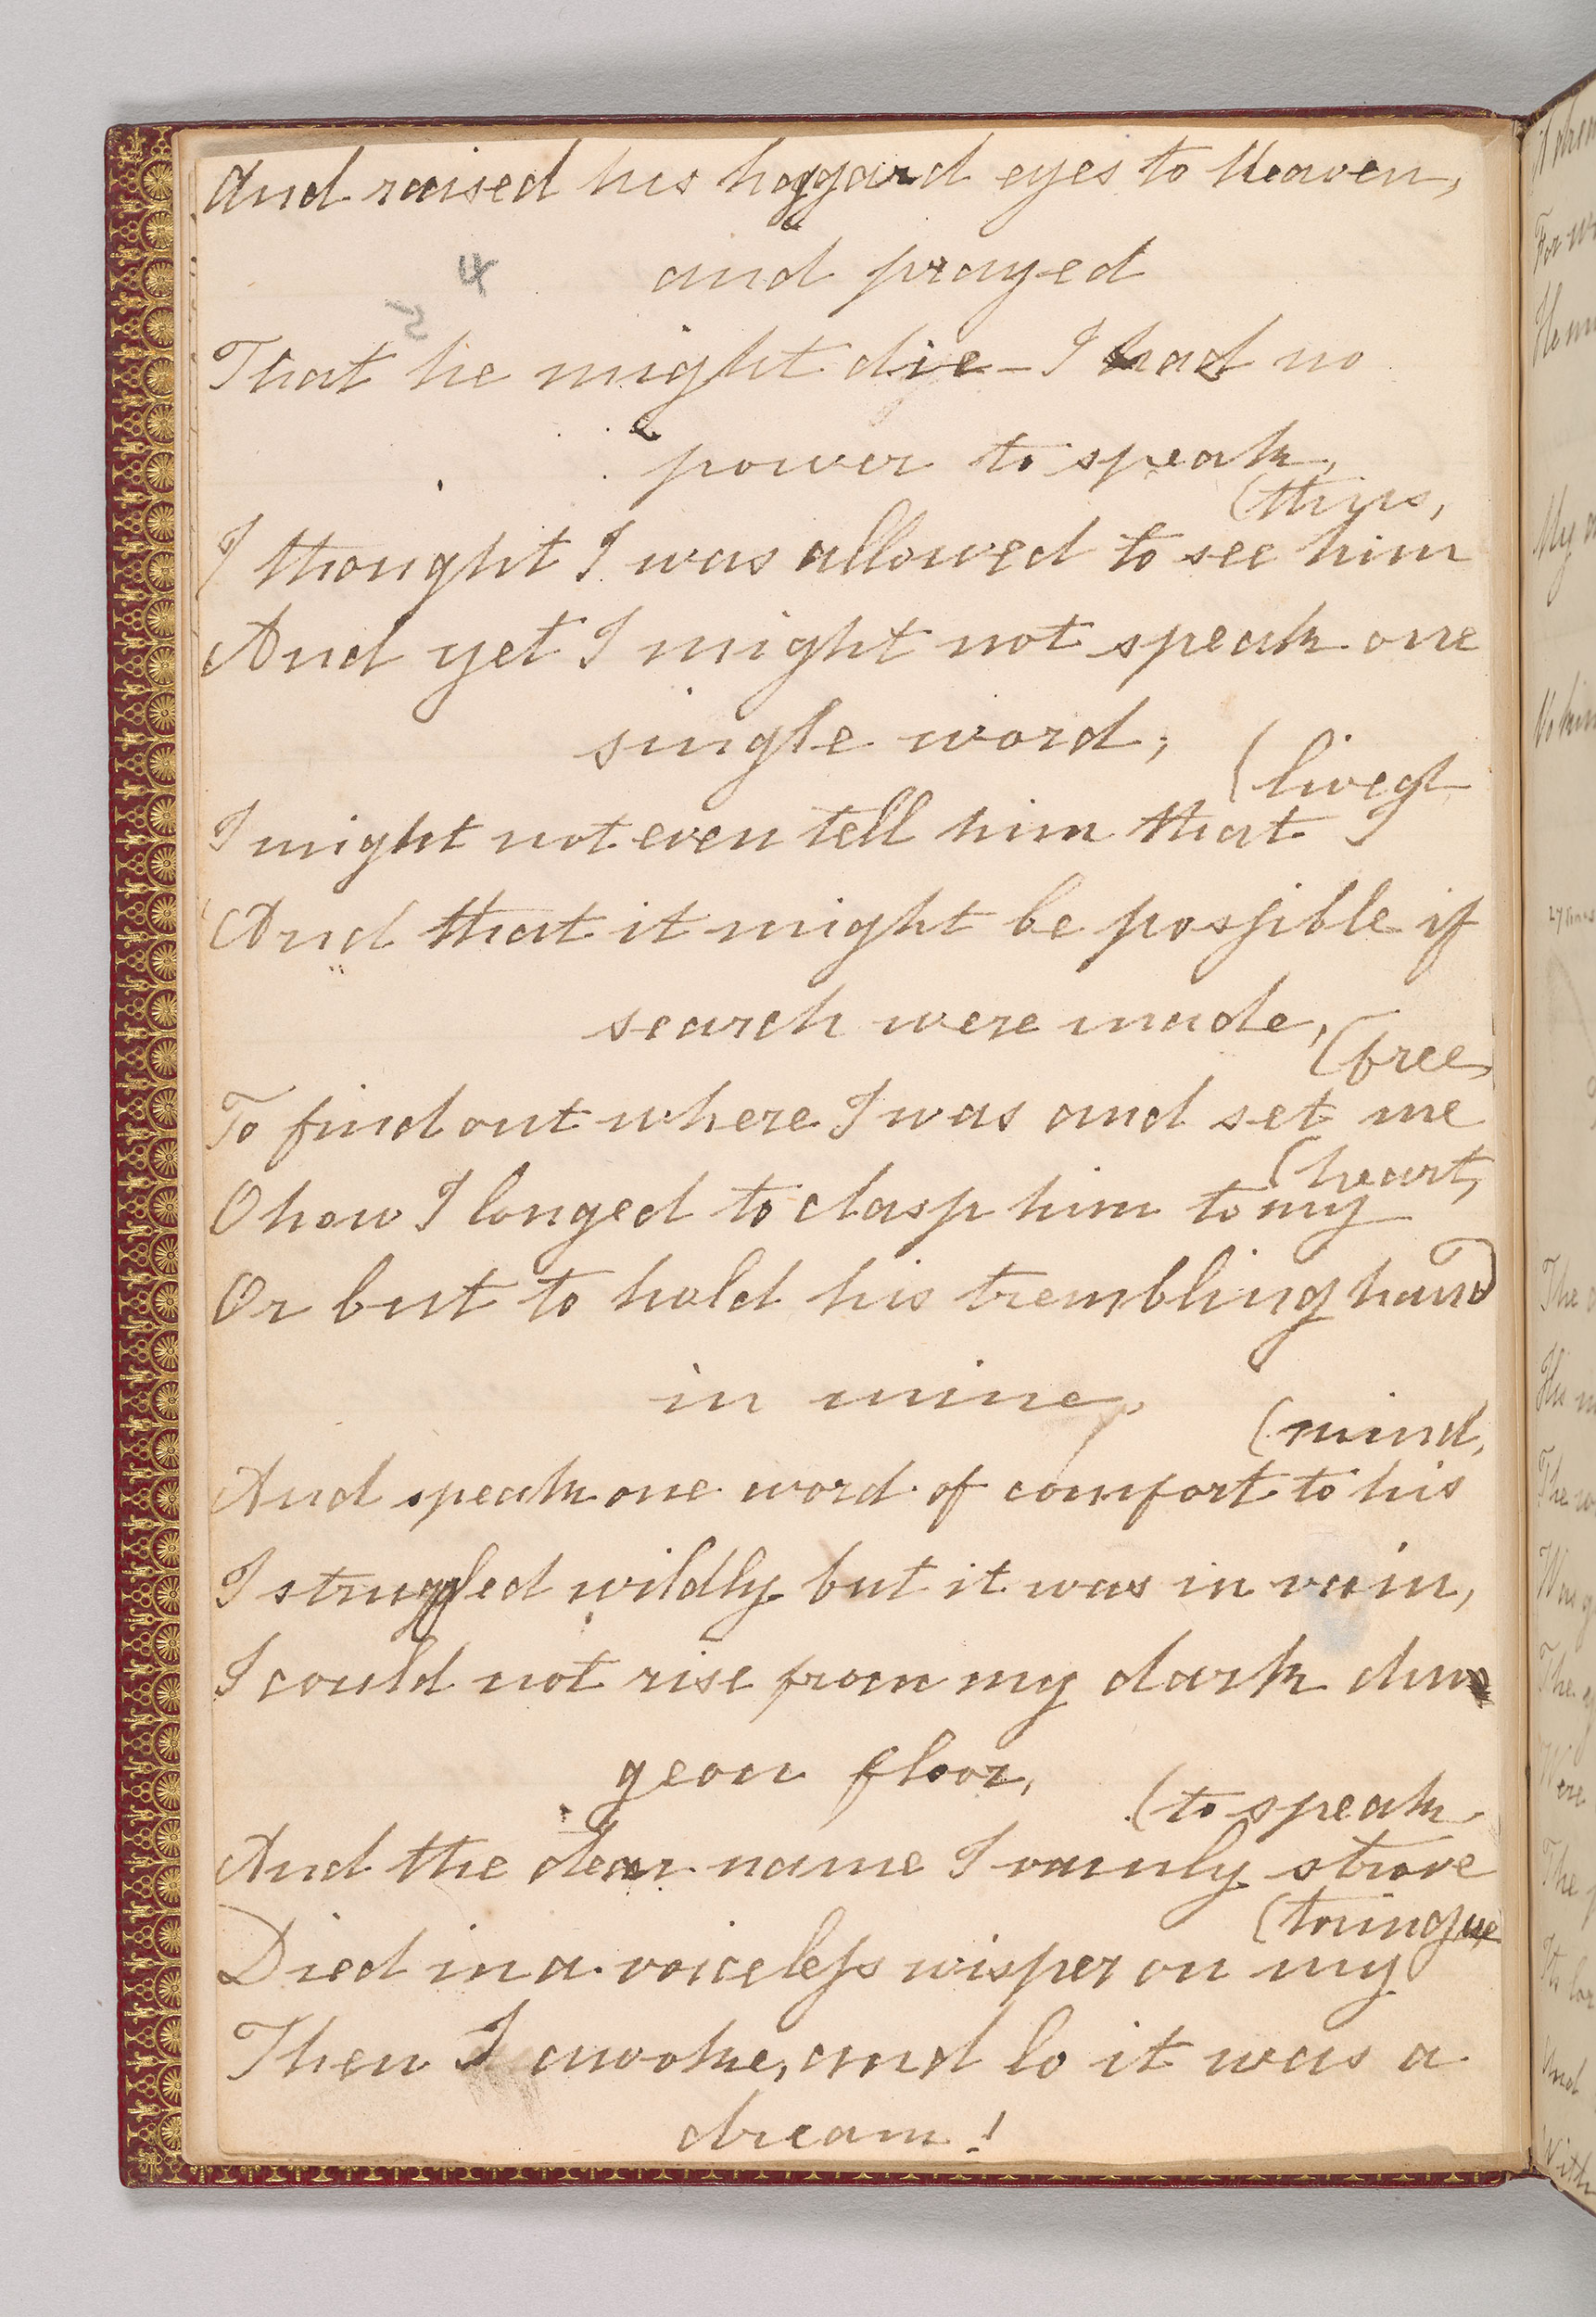 And raised his haggard eyes to Heaven,
and prayed
4
That he might die – I had no
power to speak,
(thus,
I thought I was allowed to see him
And yet I might not speak one
single word;
(lived
I might not even tell him that I
And that it might be possible if
search were made,
(free,
To find out where I was and set me
(heart,
O how I longed to clasp him to my
Or but to hold his trembling hand
in mine,
(mind,
And speak one word of comfort to his
I struggled wildly but it was in vain,
I could not rise from my dark dun
geon floor,
(to speak,
And the dear name I vainly strove
(toungue
Died in a voiceless wisper on my
Then I awoke, and lo it was a
dream!